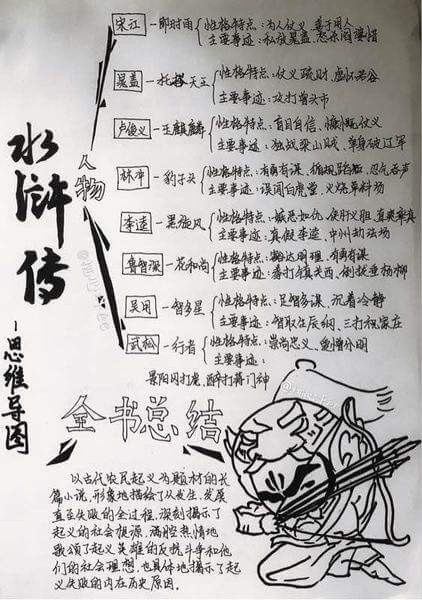 水浒传
-思维导图
人物
宋江—即时雨
性格特点：为人仗义、善于用人
主要事迹：私放晁盖、怒杀阎婆惜
晁盖—托塔天王
性格特点：仗义疏财、虚怀若谷
主要事迹：攻打曾头市
卢俊义—玉麒麟
性格特点：盲目自信、慷慨仗义
主要事迹：独战梁山贼、单身破辽军
林冲—豹子头
性格特点：有勇有谋、循规蹈矩、忍气吞声
主要事迹：误闯白虎堂、火烧草料场
李逵—黑旋风
性格特点：嫉恶如仇、使肝义胆、直爽率真
主要事迹：真假李逵、中州劫法场
鲁智深—花和尚
性格特点：豁达明理、有勇有谋
主要事迹：拳打镇关西、倒拔垂杨柳
吴用—智多星
性格特点：足智多谋、沉着冷静
主要事迹：智取生辰纲、三打祝家庄
武松—行者
性格特点：崇尚忠义、爱憎分明
主要事迹：
景阳冈打虎、醉打蒋门神
全书总结
以古代农民起义为题材的长
篇小说，形象地描绘了从发生、发展
直至失败的全过程，深刻揭示了
起义的社会根源，满腔热情地
歌颂了起义英雄的反抗斗争和他
们的社会理想，也具体地揭示了起
义失败的内在历史原因。